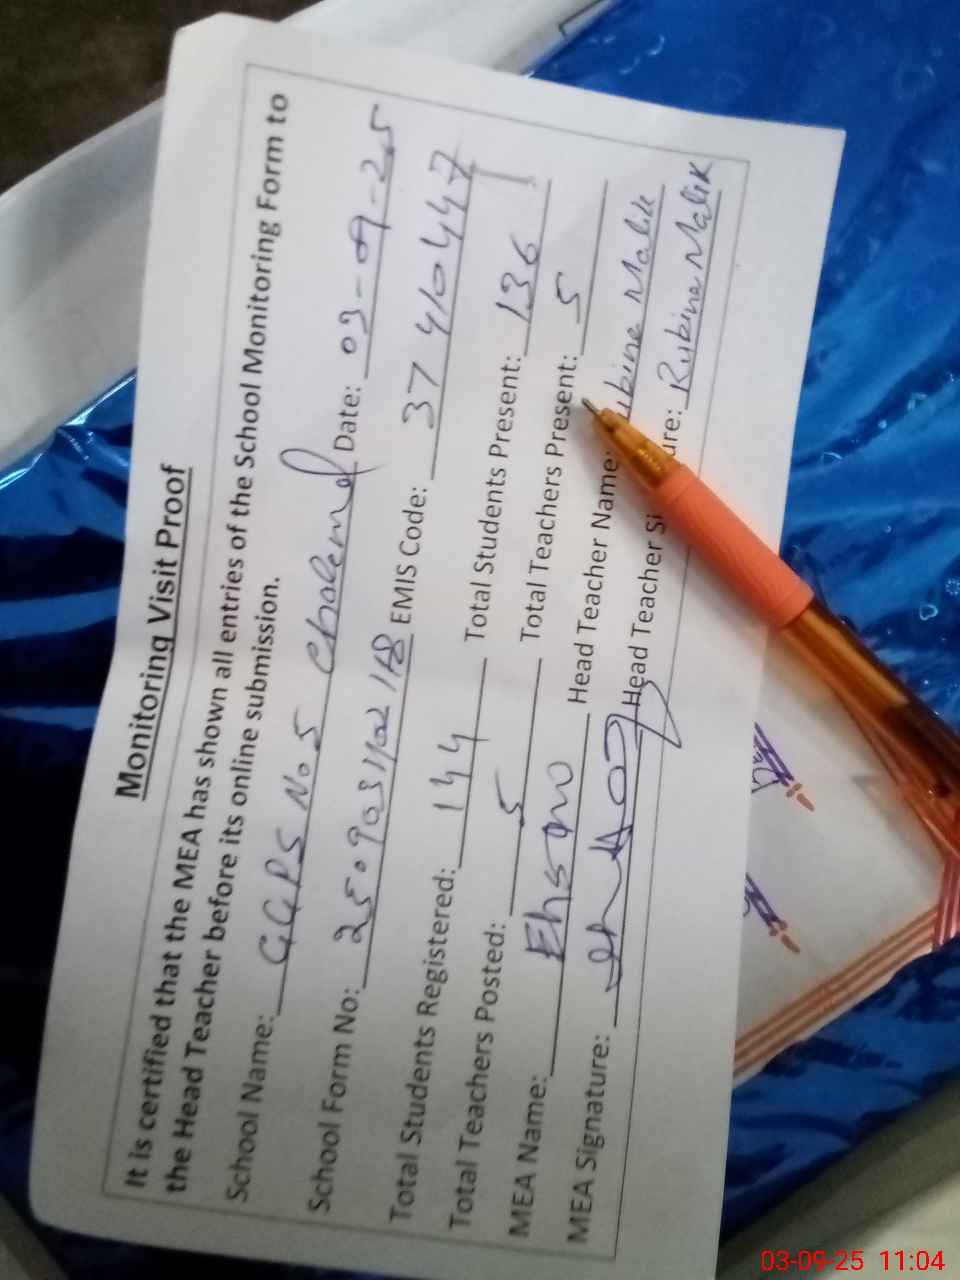 Monitoring Visit Proof
It is certified that the MEA has shown all entries of the School Monitoring Form to
the Head Teacher before its online submission.
School Name: GGPS No 5 Date: 03-09-25
School Form No: EMIS Code: 37410447
Total Students Registered: 144 Total Students Present: 136
Total Teachers Posted: 5 Total Teachers Present: 5
MEA Name: Head Teacher Name: Malik
MEA Signature: Head Teacher Rubina Malik
03-09-25 11:04